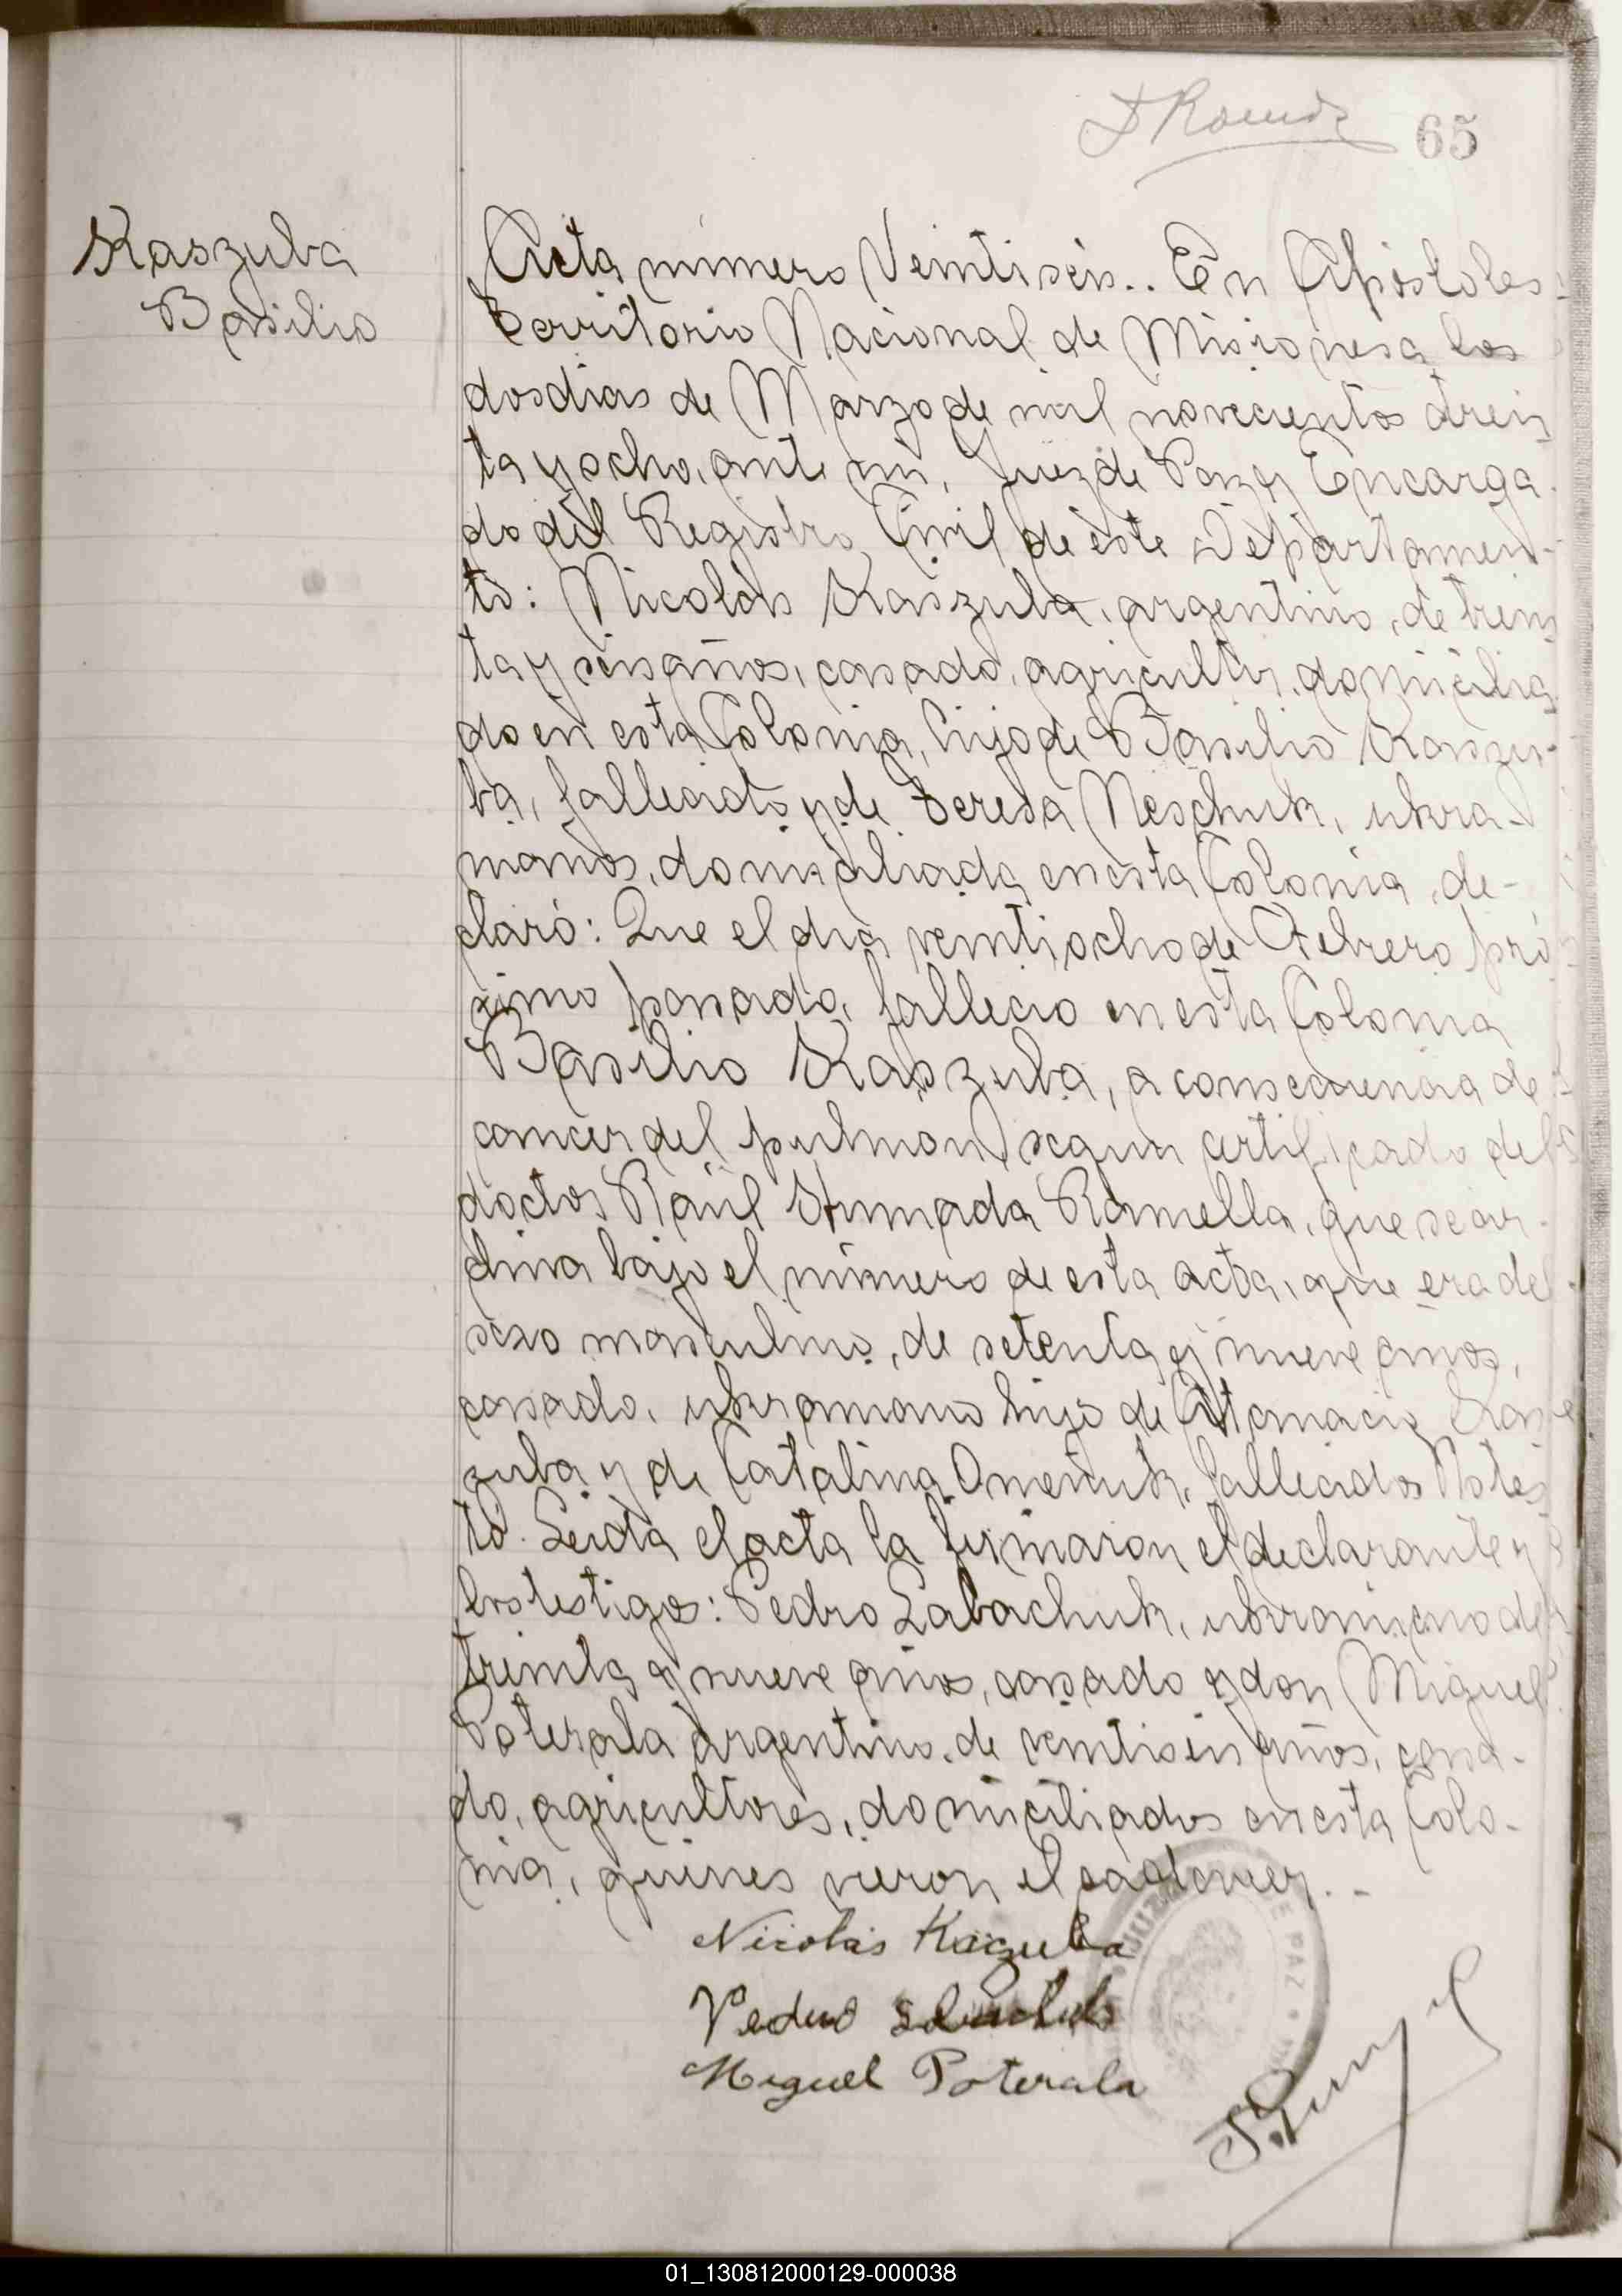 65
Kaszuba
Basilio
Acta número Veintiseis.. En Apóstoles
Territorio Nacional de Misiones a los
dos dias de Marzo de mil novecientos trein
ta y ocho, ante mi, Juez de Paz y Encarga
do del Registro Civil de este Departamen-
to: Nicolás Kaszuba, argentino, de trein
ta y seis años, casado, agricultor, domicilia
do en esta Colonia, hijo de Basilio Kaszu-
ba, fallecido y de Teresa Neschuk, ukra-
nianos, domiciliada en esta Colonia, de-
claró: Que el dia veintiocho de Febrero pró
ximo pasado, fallecio en esta Colonia
Basilio Kaszuba, a consecuencia de
cancer del pulmon segun certificado del
doctor Raúl Ramella, que se ar-
chiva bajo el número de esta acta, que era del
sexo masculino, de setenta y nueve años,
casado, ukraniano hijo de Atanacio Kas
zuba y de Catalina fallecidos No tes
tó. Leida el acta la firmaron el declarante y
los testigos: Pedro Labachuk, ukraniano de
treinta y nueve años, casado y don Miguel
Poterala argentino, de veintiseis años, casa-
do, agricultores, domiciliados en esta Colo-
nia, quienes vieron el cadaver. -
Nicolás Kaszuba
Pedro
Miguel Poterala
DE PAZ
01_130812000129-000038